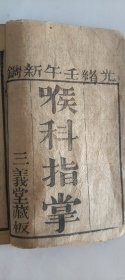 光緒壬午新鐫
喉科指掌
三義堂藏板